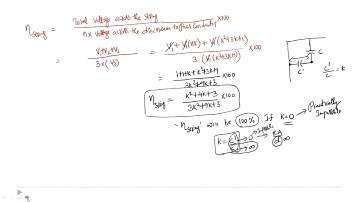 η string = Total voltage across the string / n x voltage across the disc nearest to power conductor x100
= V1+V2+V3 / 3x(V3) = V1 + V1(1+K) + V1(K²+3K+1) / 3 (V1(K²+3K+1)) x100
= 1+1+K+K²+3K+1 / 3K²+9K+3 x100
η string = K²+4K+3 / 3K²+9K+3 x100
C
C'
C'/C = K
- η string will be 100% If K=0 → Practically Impossible
K = C'/C → 0
→ ∞